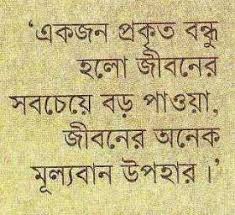 ‘একজন প্রকৃত বন্ধু
হলো জীবনের
সবচেয়ে বড় পাওয়া,
জীবনের অনেক
মূল্যবান উপহার।’